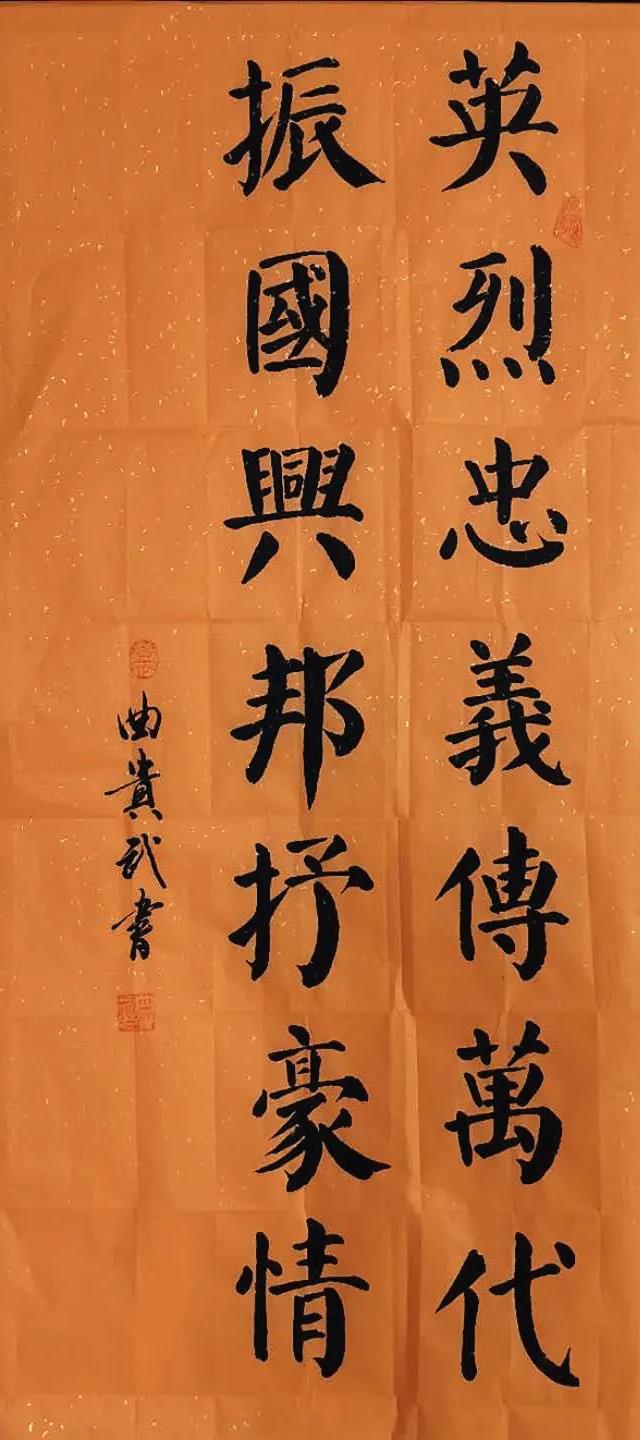 英烈忠義傳萬代
振國興邦抒豪情
曲貴武書